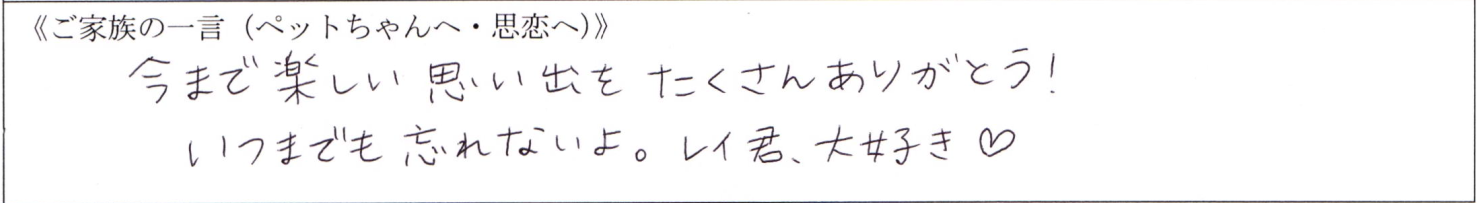 《ご家族の一言（ペットちゃんへ・思恋へ）》
今まで楽しい思い出をたくさんありがとう！
いつまでも忘れないよ。レイ君、大好き♡